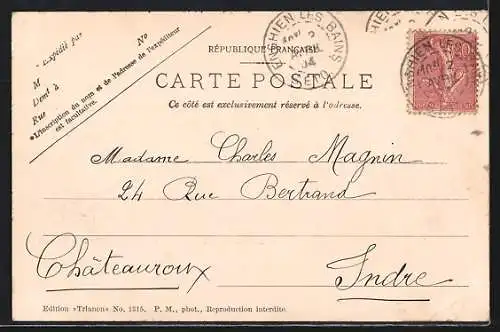 ENGHIEN LES BAINS
RÉPUBLIQUE FRANÇAISE
CARTE POSTALE
Ce côté est exclusivement réservé à l'adresse.
Expédié par
M
N°
Demt à
Rue
*L'inscription du nom et de l'adresse de l'expéditeur
est facultative.
Madame Charles Magnin
24 Rue Bertrand
Châteauroux
Indre
Edition «Trianon» No. 1315. P. M., phot., Reproduction interdite.